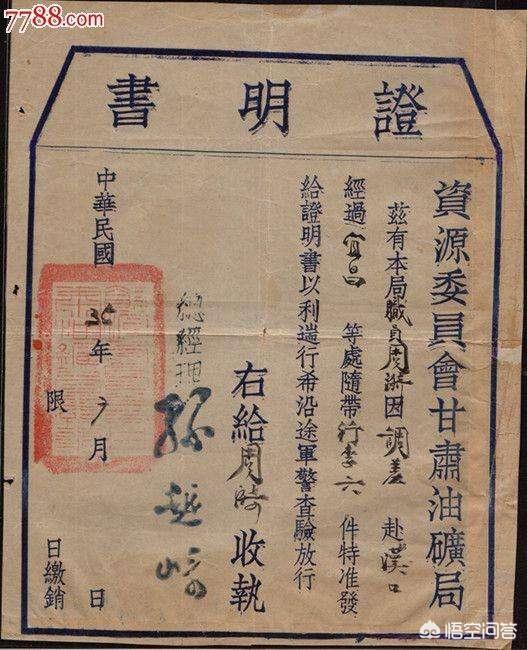 7788.com
證明書
資源委員會甘肅油礦局
茲有本局職員周　因調差赴漢口
經過宜昌等處隨帶行李六件特准發
給證明書以利遄行希沿途軍警查驗放行
右給周　收執
總經理 孫越崎
中華民國35年　月　日
限　日繳銷
悟空问答